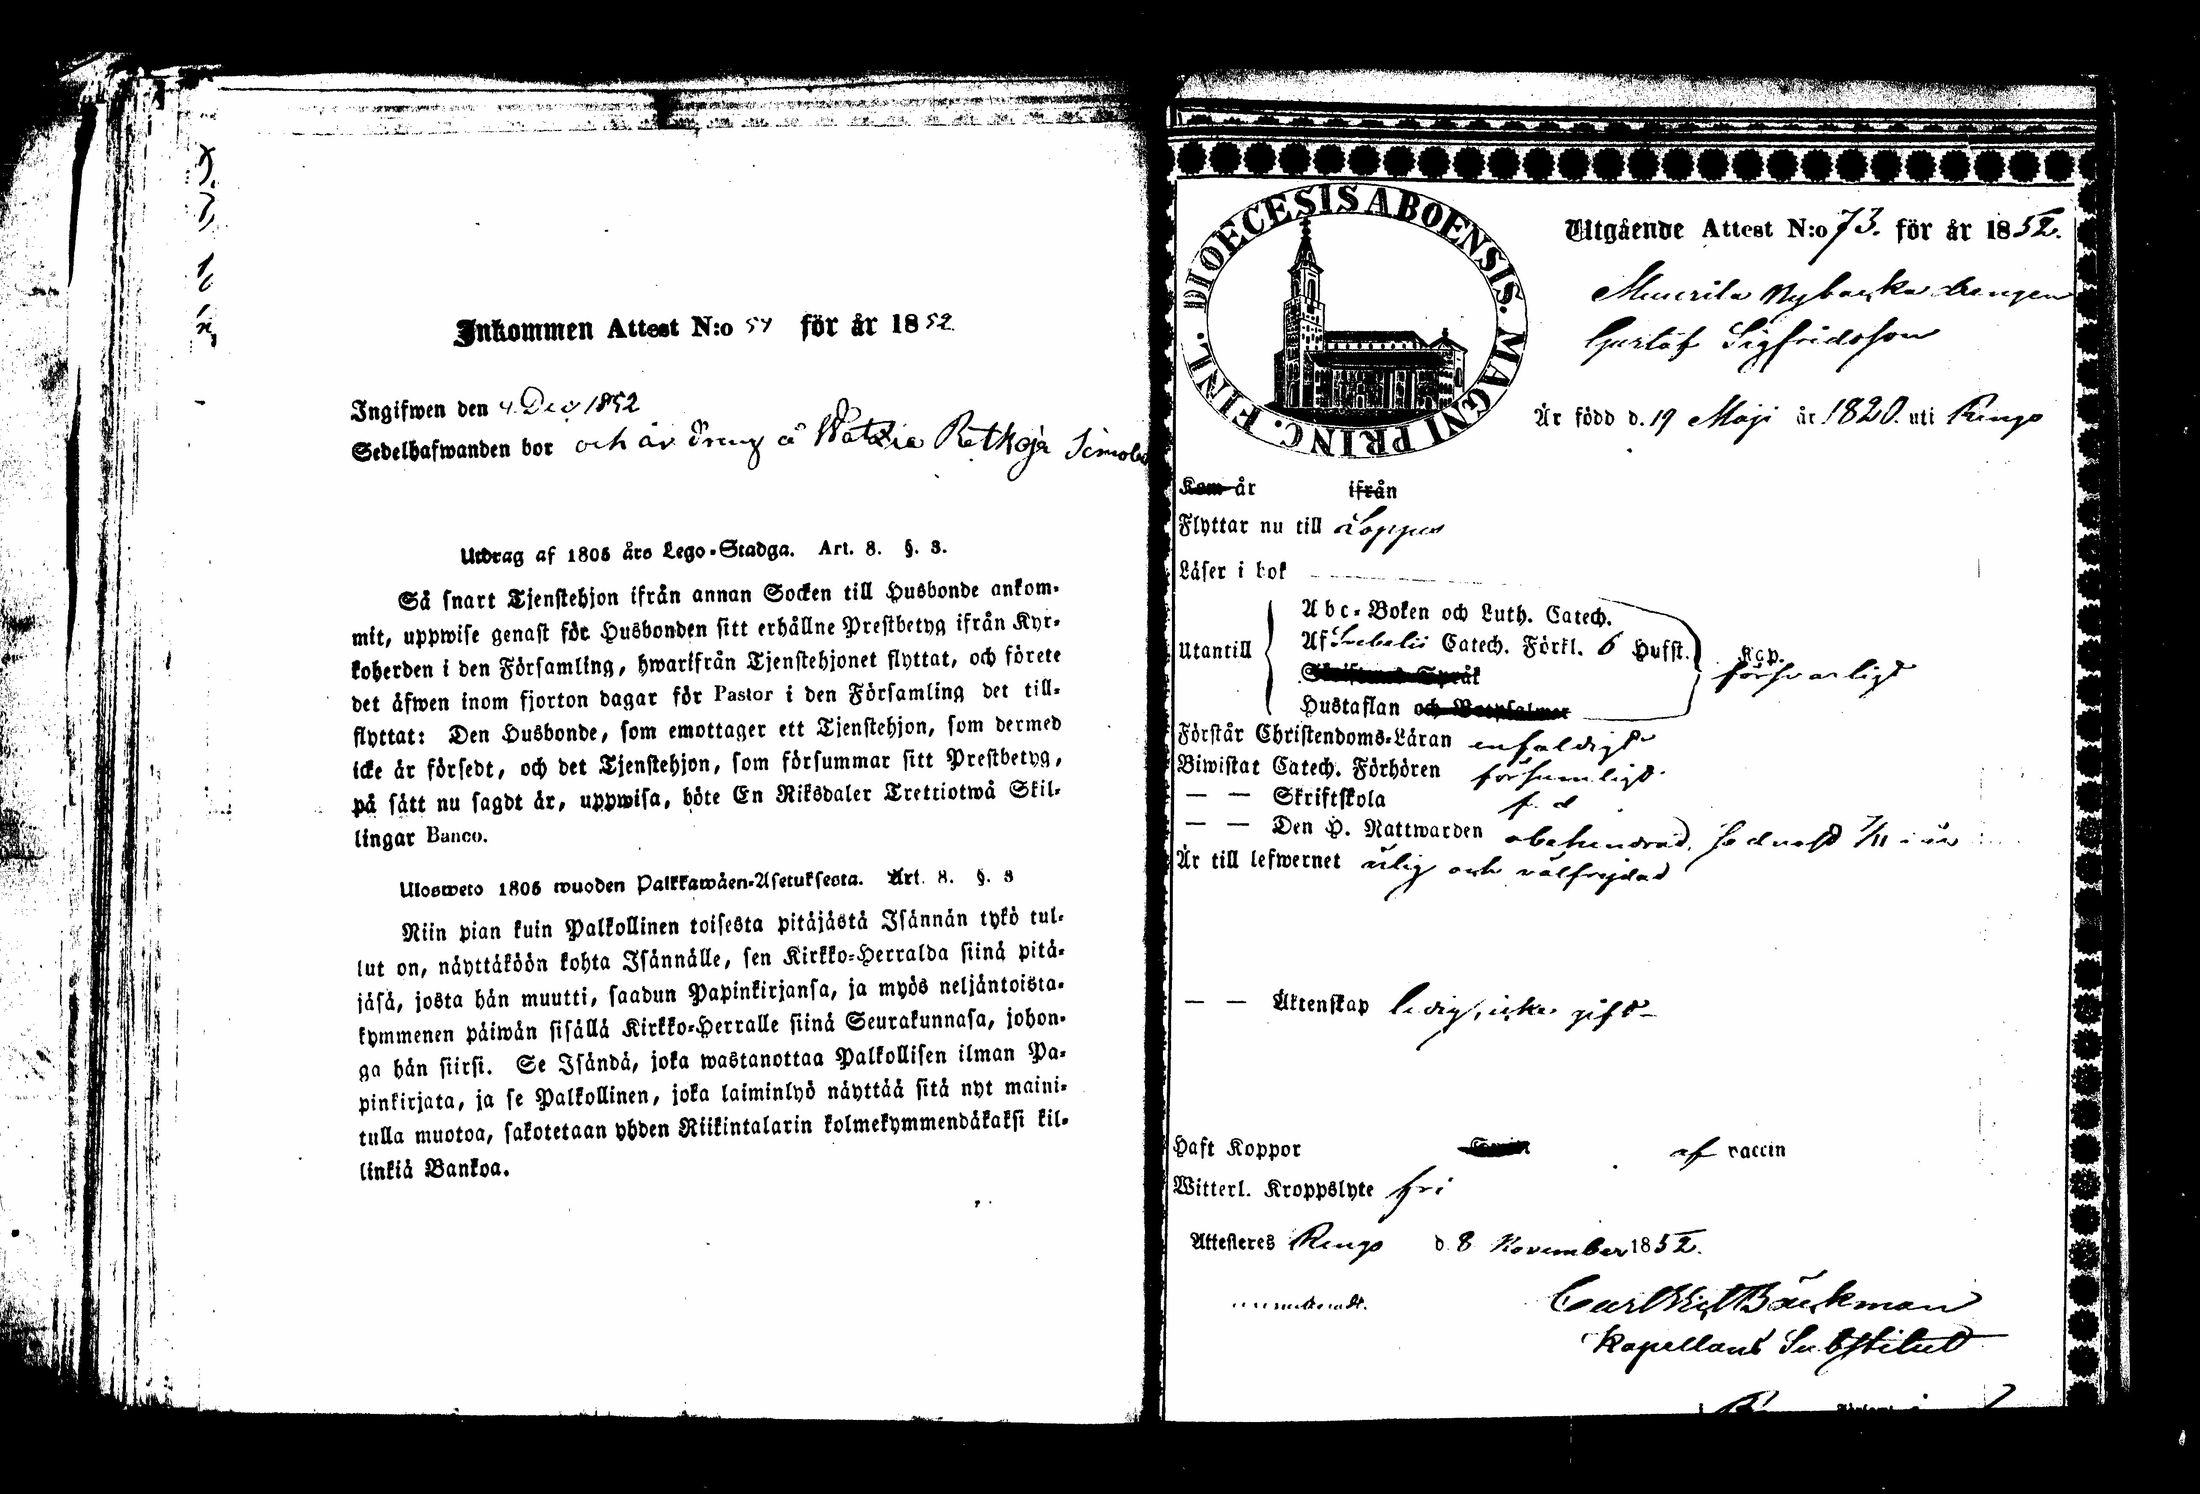 Inkommen Attest N:o 54 för år 1852.
Ingifwen den 4 Dec 1852
Sedelhafwanden bor och är dräng å
Utdrag af 1805 års Lego-Stadga. Art. 8. §. 3.
Så snart Tjenstehjon ifrån annan Socken till Husbonde ankom-
mit, uppwise genast för Husbonden sitt erhållne Prestbetyg ifrån Kyr-
koherden i den Församling, hwarifrån Tjenstehjonet flyttat, och förete
det äfwen inom fjorton dagar för Pastor i den Församling det till-
flyttat: Den Husbonde, som emottager ett Tjenstehjon, som dermed
icke är försedt, och det Tjenstehjon, som försummar sitt Prestbetyg,
på sätt nu sagdt är, uppwisa, böte En Riksdaler Trettiotwå Skil-
lingar Banco.
Ulosweto 1805 wuoden Palkkawäen-Asetuksesta. Art. 8. §. 3
Niin pian kuin Palkollinen toisesta pitäjästä Isännän tykö tul-
lut on, näyttäköön kohta Isännälle, sen Kirkko-Herralda siinä pitä-
jäsä, josta hän muutti, saadun Papinkirjansa, ja myös neljäntoista-
kymmenen päiwän sisällä Kirkko-Herralle siinä Seurakunnasa, johon-
ga hän siirsi. Se Isändä, joka wastanottaa Palkollisen ilman Pa-
pinkirjata, ja se Palkollinen, joka laiminlyö näyttää sitä nyt maini-
tulla muotoa, sakotetaan yhden Riikintalarin kolmekymmendäkaksi kil-
linkiä Bankoa.
DIOECESIS ABOENSIS. MAGNI PRINC. FINL.
Utgående Attest N:o 73. för år 1852.
Nybacka drengen
Gustaf Sigfridsson
Är född d. 19 Maji år 1820. uti Rengo
Kom år ifrån
Flyttar nu till Loppis
Läser i bok
Abc-Boken och Luth. Catech.
Utantill Af Svebelii Catech. Förkl. 6 Hufst. Kap.
Skriftenes Språk försvarligt
Hustaflan och Botpsalmer
Förstår Christendoms-Läran enfaldigt
Biwistat Catech. Förhören försumligt
— — Skriftskola
— — Den H. Nattwarden obehindrad, sednast 7/11 i år
Är till lefwernet ärlig och välfrejdad
— — Äktenskap ledig, icke gift
Haft Koppor af vaccin
Witterl. Kroppslyte fri
Attesteres Rengo d. 8 November 1852.
Bäckman
Kapellans Substitut